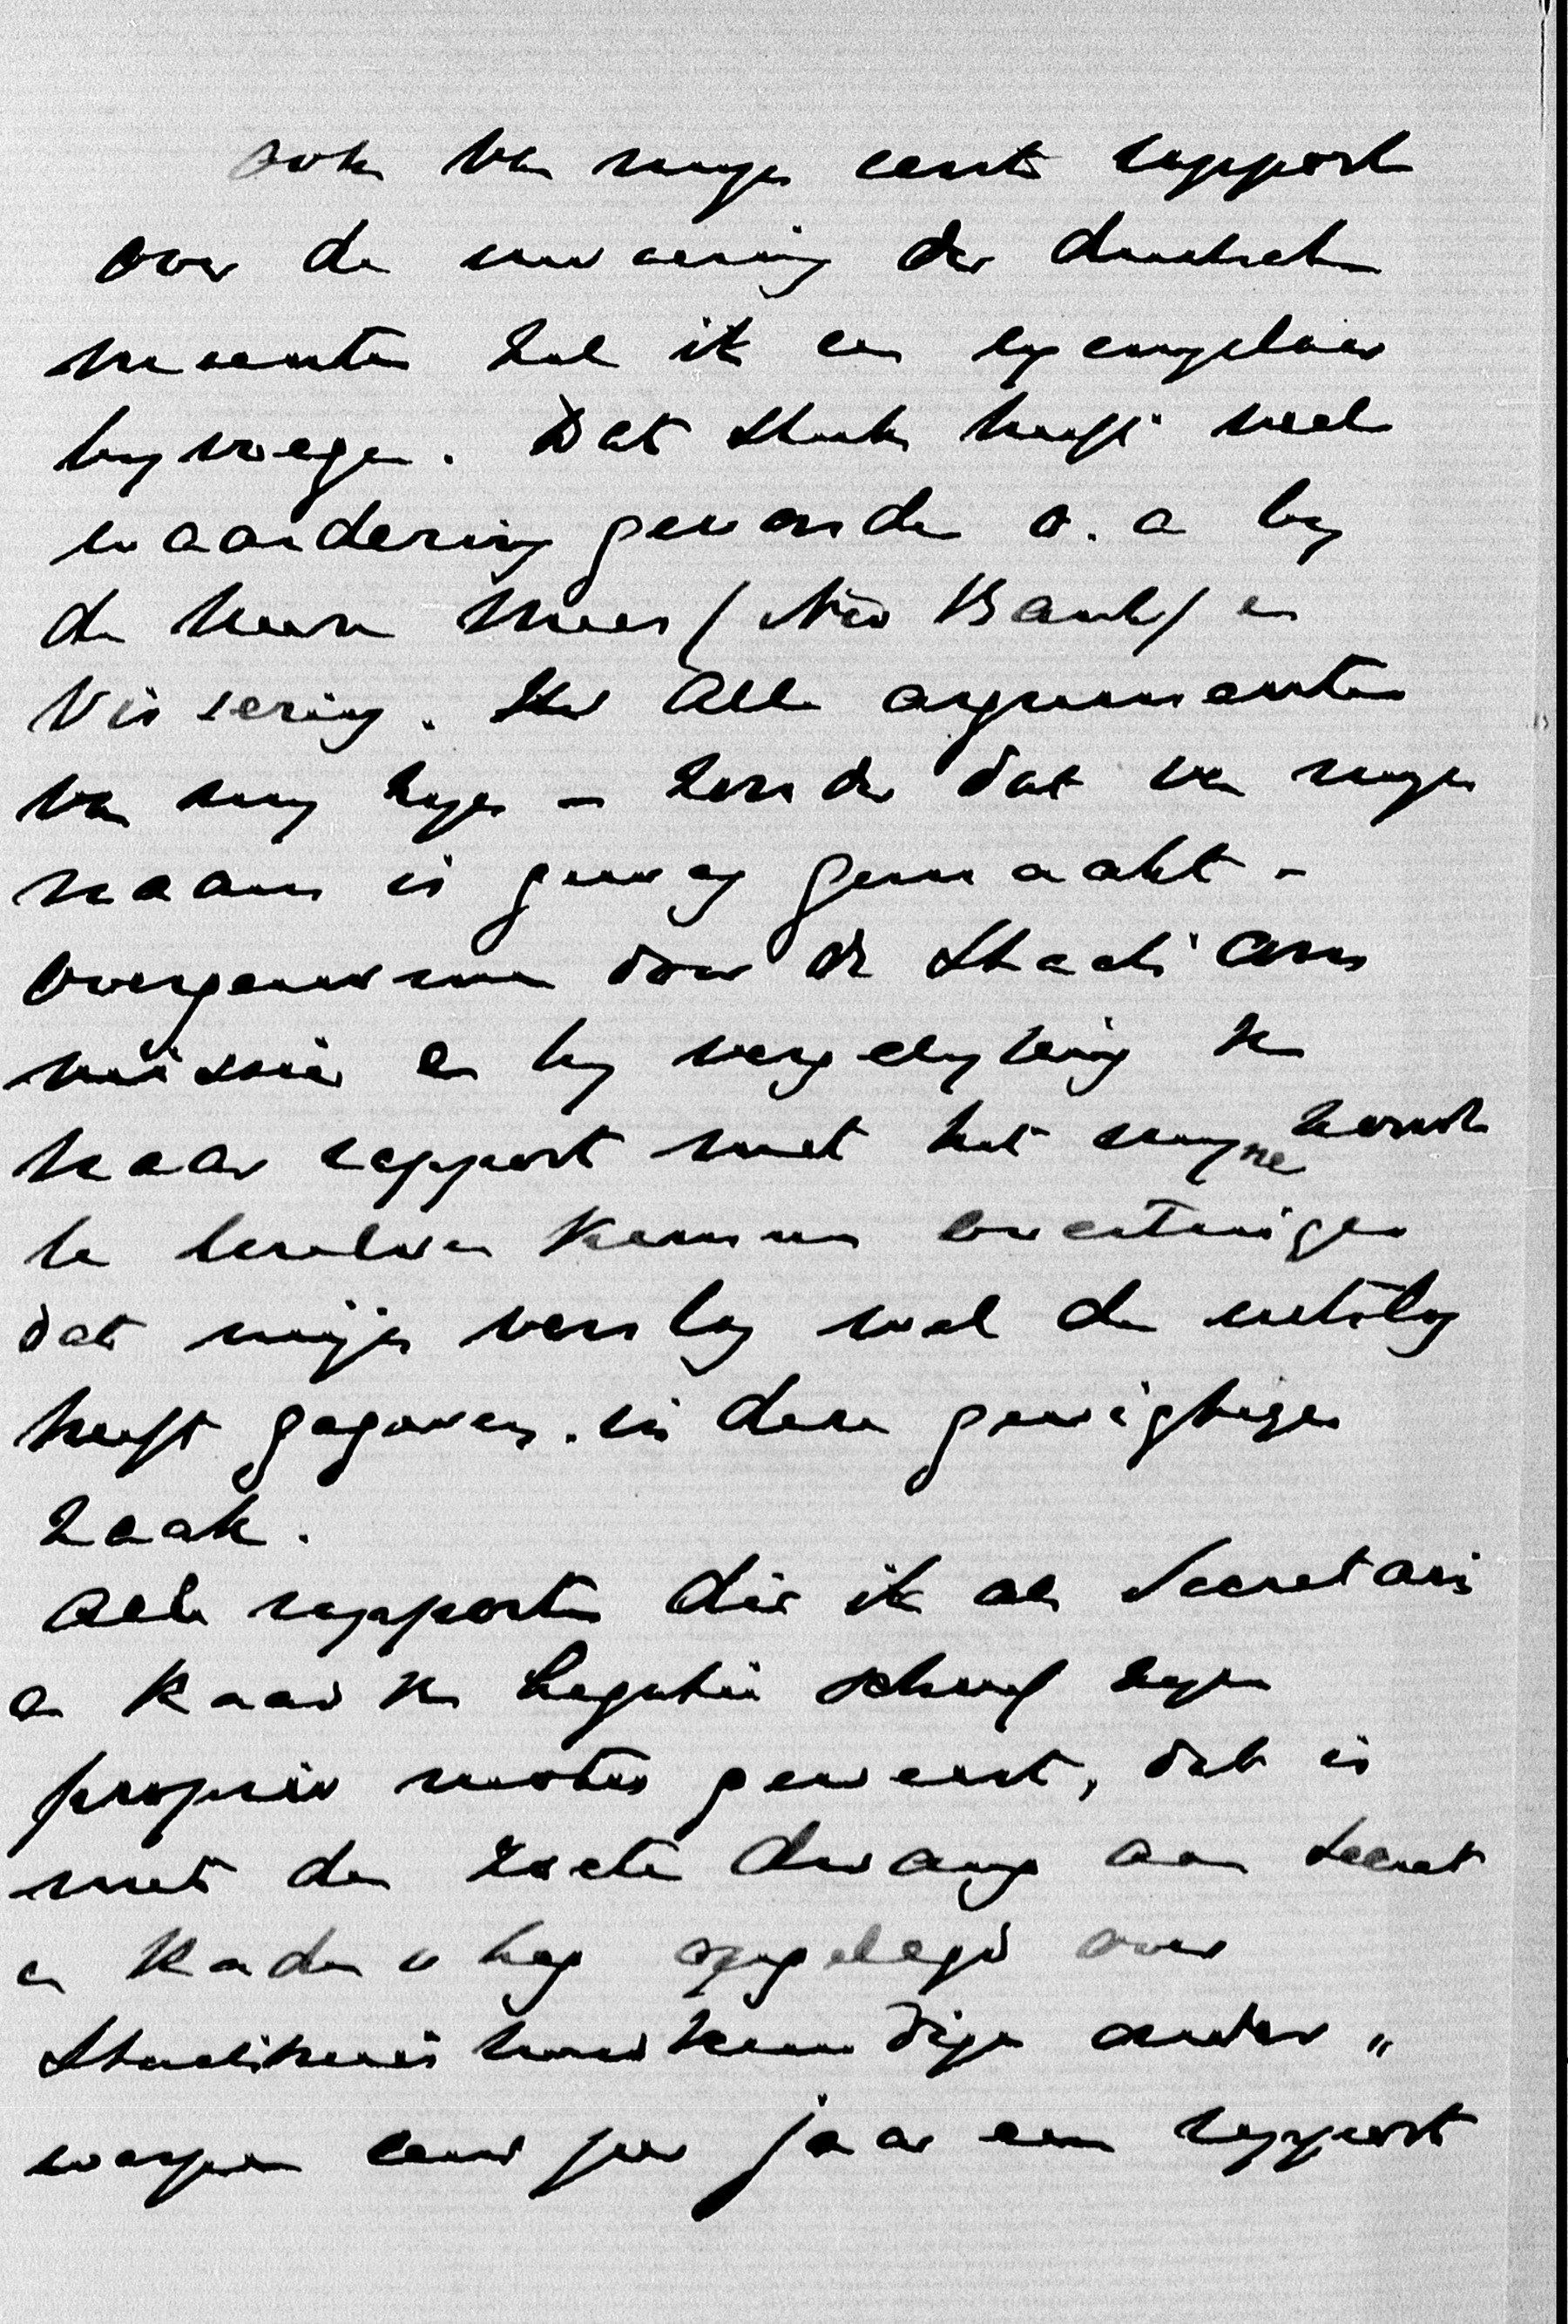 ook van mijn eerste rapport
over de invoering der duitsche
munten zal ik een exemplaar
byvoegen. Dat stuk heeft veel
waardering gevonden o.a by
de heeren Mees (Ned Bank) en
Vissering. Alle argumenten
van my zyn - zonder dat van mijn
naam is gewag gemaakt -
overgenomen door de Staats Com
missie en by vergelyking van
haar rapport met het myne zoudt
te kunnen overtuigen
dat mijn verslag wel de uitslag
heeft gegeven in deze gewigtige
zaak.
Alle rapporten die ik als Secretaris
en Raad van Legatie schreef zyn
proprio motu geweest, dat is
met den zoeten dwang aan Secret
en Raden v Leg opgelegd over
Staathuishoudkundige onder„
werpen eens per jaar een rapport